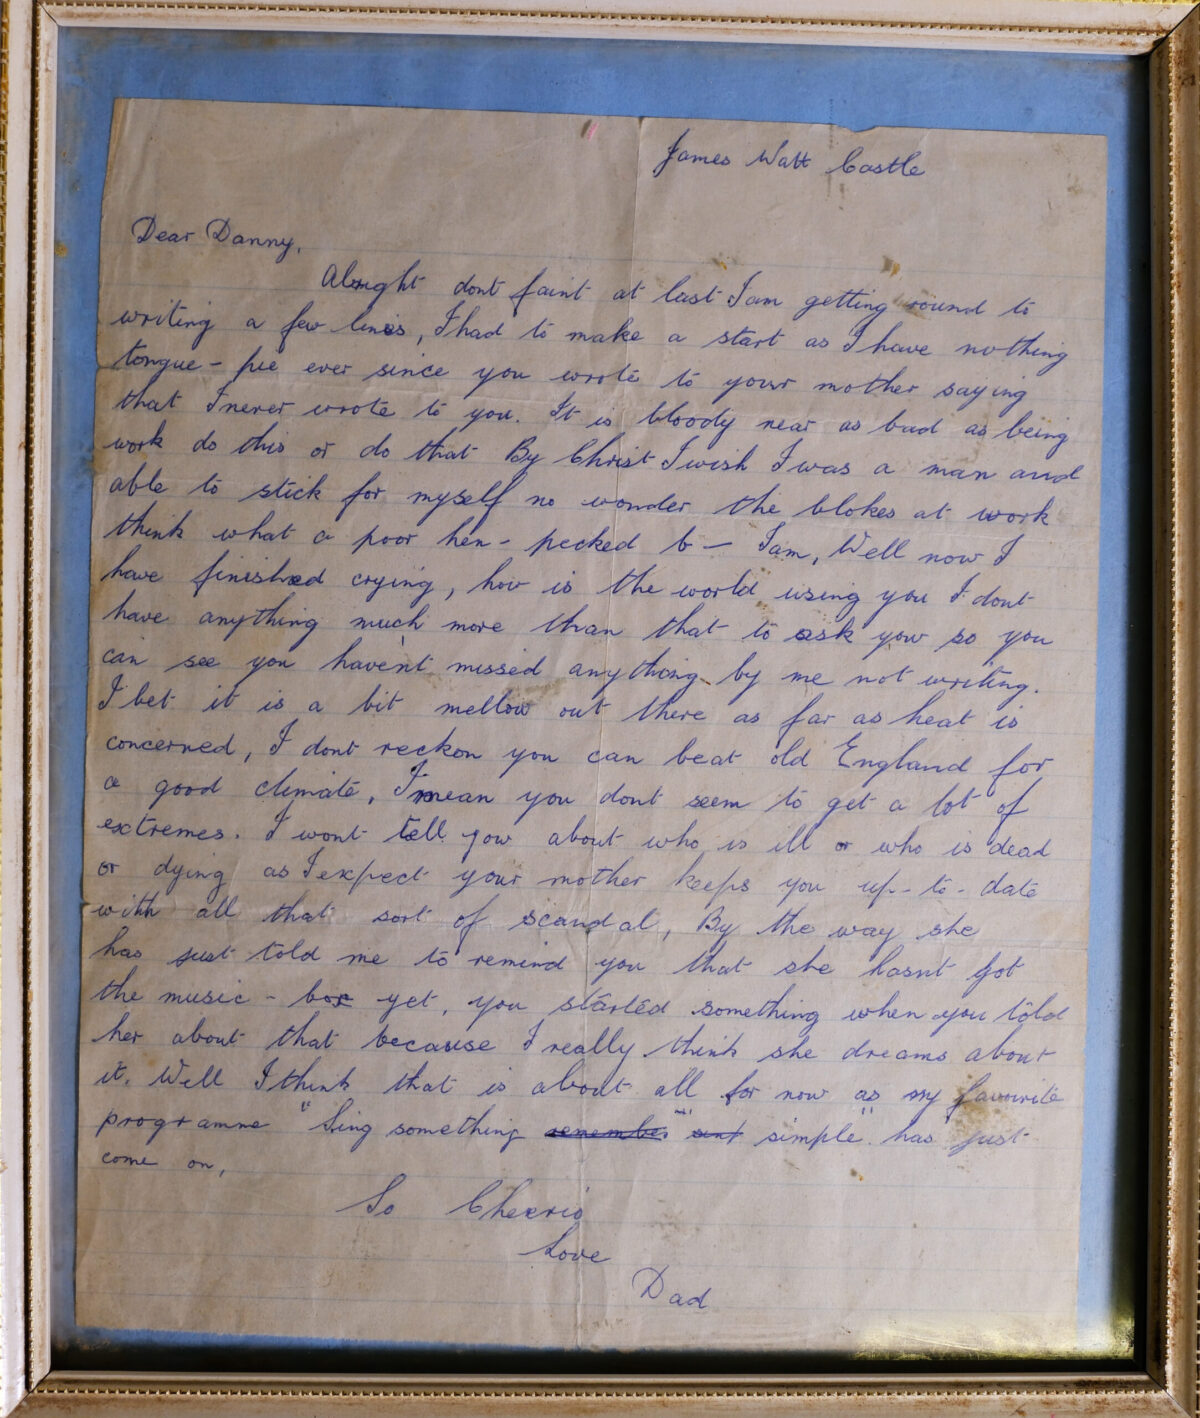 James Watt Castle
Dear Danny,
Alright dont faint at last I am getting round to
writing a few lines, I had to make a start as I have nothing
tongue-pie ever since you wrote to your mother saying
that I never wrote to you. It is bloody near as bad as being
work do this or do that By Christ I wish I was a man and
able to stick for myself no wonder the blokes at work
think what a poor hen-pecked b— I am, Well now I
have finished crying, how is the world using you I dont
have anything much more than that to ask you so you
can see you havent missed anything by me not writing.
I bet it is a bit mellow out there as far as heat is
concerned, I dont reckon you can beat old England for
a good climate, I mean you dont seem to get a lot of
extremes. I wont tell you about who is ill or who is dead
or dying as I expect your mother keeps you up-to-date
with all that sort of scandal, By the way she
has just told me to remind you that she hasnt got
the music-box yet, you started something when you told
her about that because I really think she dreams about
it. Well I think that is about all for now as my favourite
programme "Sing something simple" has just
come on,
So Cheerio
Love
Dad